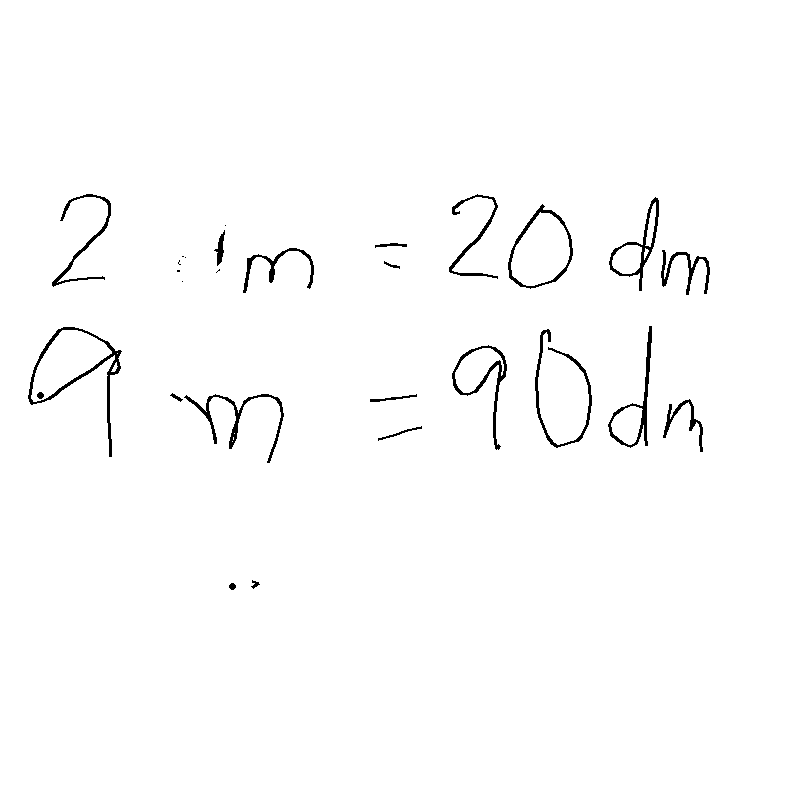 2 m = 20 dm
9 m = 90 dm